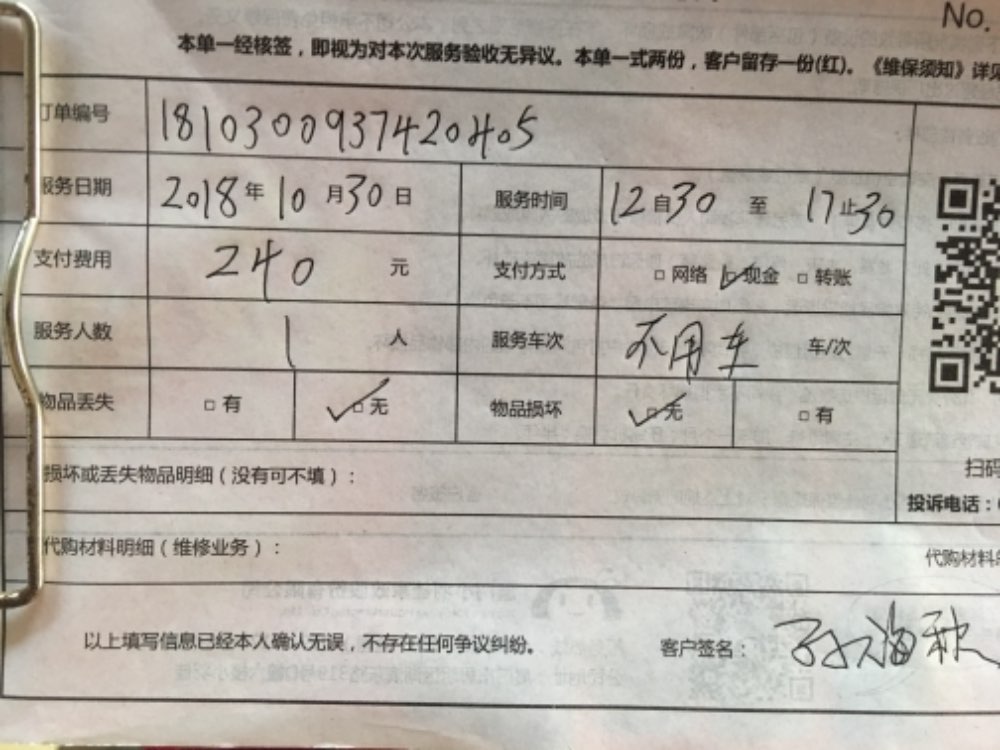 No.
本单一经核签，即视为对本次服务验收无异议。本单一式两份，客户留存一份(红)。《维保须知》详见
订单编号 1810300937420405
服务日期 2018年10月30日 服务时间 12自30 至 17止30
支付费用 240 元 支付方式 □网络 ☑现金 □转账
服务人数 1 人 服务车次 不用车 车/次
物品丢失 □有 ☑无 物品损坏 ☑无 □有
损坏或丢失物品明细（没有可不填）：
扫码
投诉电话：
代购材料明细（维修业务）：
代购材料
以上填写信息已经本人确认无误，不存在任何争议纠纷。 客户签名： 孙海秋